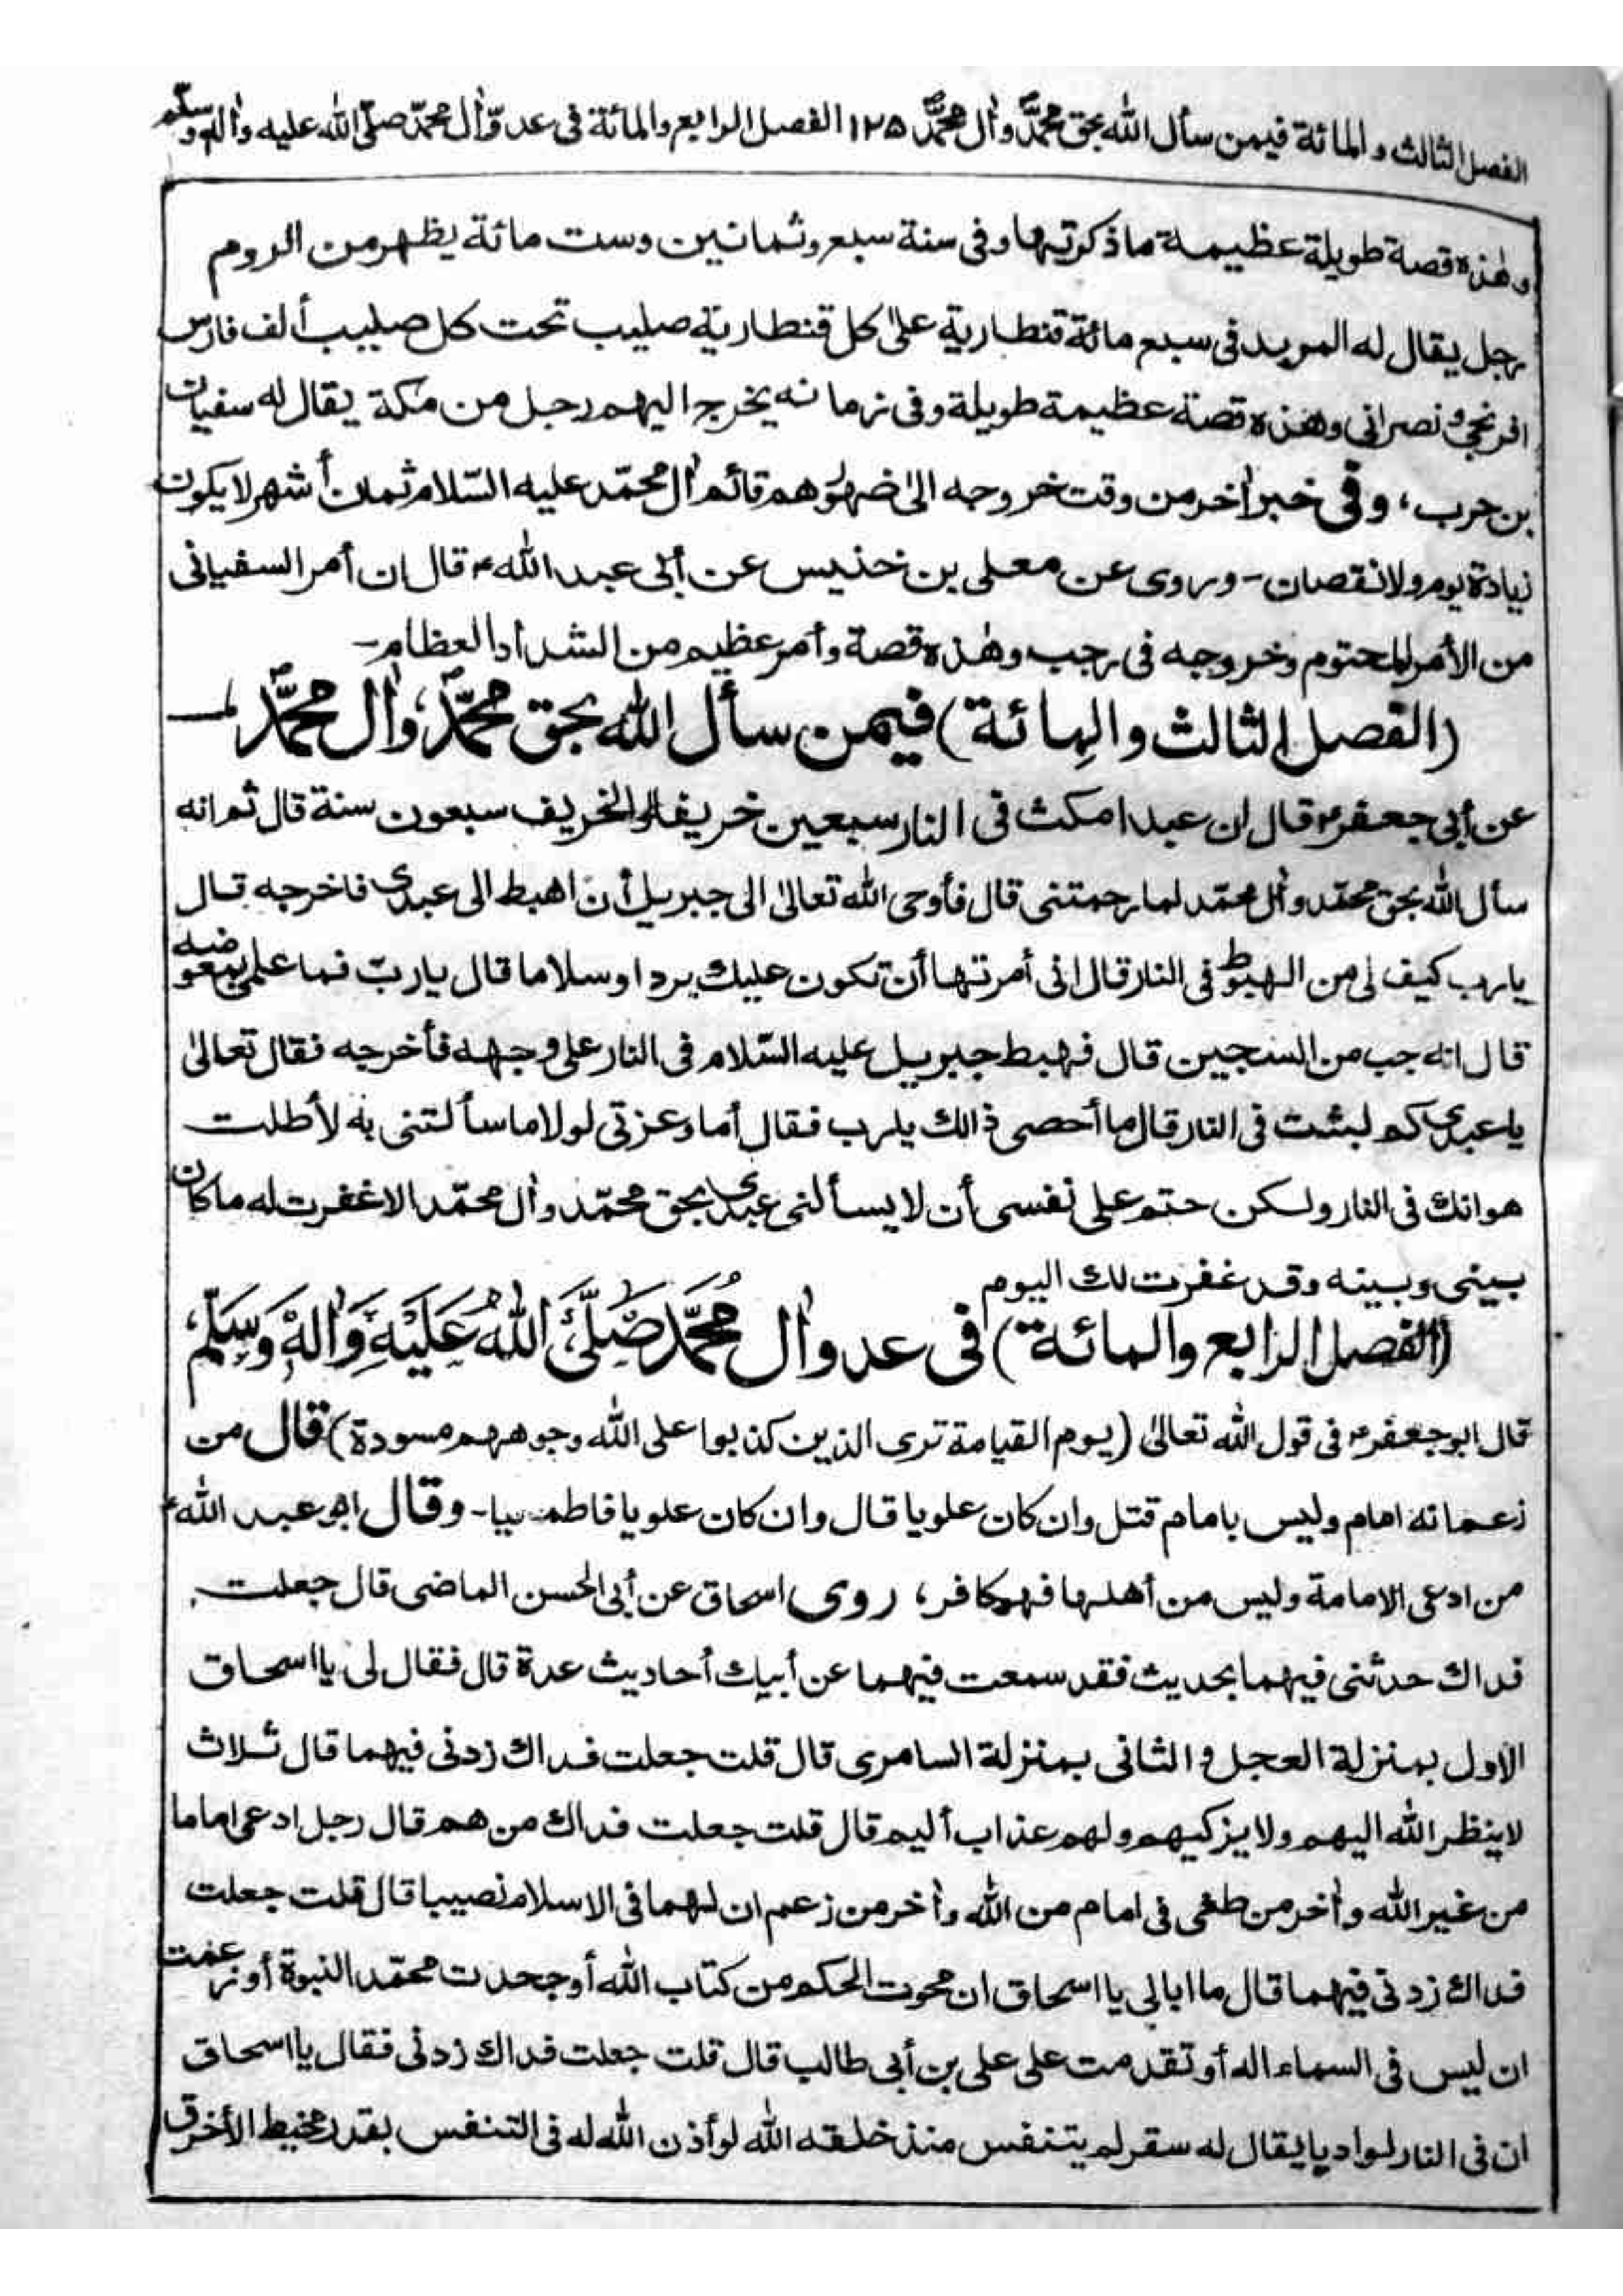 الفصل الثالث والمائة فيمن سأل الله بحق محمّدؐ وآل محمّدؐ ١٢٥ الفصل الرابع والمائة فى عدوّ آل محمّد صلّى الله عليه وآله وسلّم
وهٰذه قصة طويلة عظيمة ماذكرتها وفى سنة سبع وثمانين وست مائة يظهر من الروم
رجل يقال له المريد فى سبع مائة قنطارية على كل قنطارية صليب تحت كل صليب ألف فارس
افرنجى ونصرانى وهٰذه قصة عظيمة طويلة وفى زمانه يخرج اليهم رجل من مكة يقال له سفيان
بن حرب، وفى خبر آخر من وقت خروجه الى ظهور قائم آل محمّد عليه السّلام ثمان أشهر لايكون
زيادة يوم ولا نقصان - وروى عن معلى بن خنيس عن أبى عبد الله ؑ قال ان أمر السفيانى
من الأمر المحتوم وخروجه فى رجب وهٰذه قصة وأمر عظيم من الشداد العظام -
(الفصل الثالث والمائة) فيمن سأل الله بحق محمّدؐ، وآل محمّدؐ
عن أبى جعفر ؑ قال ان عبدا مكث فى النار سبعين خريفا والخريف سبعون سنة قال ثم انه
سأل الله بحق محمّد وآل محمّد لما رحمتنى قال فأوحى الله تعالىٰ الى جبريل أن اهبط الى عبدى فاخرجه قال
يارب كيف لى من الهبوط فى النار قال انى أمرتها أن تكون عليك بردا وسلاما قال ياربّ فما علمى بموضعه
قال انه جب من السجين قال فهبط جبريل عليه السّلام فى النار على وجهه فأخرجه فقال تعالىٰ
ياعبدى كم لبثت فى النار قال ما أحصى ذالك يارب فقال أما وعزتى لولا ما سألتنى به لأطلت
هوانك فى النار ولكن حتم على نفسى أن لا يسألنى عبد بحق محمّد وآل محمّد الا غفرت له ما كان
بينى وبينه وقد غفرت لك اليوم
(الفصل الرابع والمائة) فى عدو آل مُحمَّد صَلَّى اللهُ عَلَيْهِ وَآلِهٖ وَسَلَّم
قال ابو جعفر ؑ فى قول الله تعالىٰ (يوم القيامة ترى الذين كذبوا على الله وجوههم مسودة) قال من
زعم انه امام وليس بامام قتل وان كان علويا قال وان كان علويا فاطميا - وقال ابو عبد الله ؑ
من ادعى الامامة وليس من أهلها فهو كافر، روى اسحاق عن أبى الحسن الماضى قال جعلت
فداك حدثنى فيهما بحديث فقد سمعت فيهما عن أبيك أحاديث عدة قال فقال لى يا اسحاق
الاول بمنزلة العجل والثانى بمنزلة السامرى قال قلت جعلت فداك زدنى فيهما قال ثلاث
لاينظر الله اليهم ولا يزكيهم ولهم عذاب أليم قال قلت جعلت فداك من هم قال رجل ادعى اماما
من غير الله وآخر من طغى فى امام من الله وآخر من زعم ان لهما فى الاسلام نصيبا قال قلت جعلت
فداك زدنى فيهما قال ما ابالى يا اسحاق ان محوت الحكم من كتاب الله أو جحدت محمّد النبوة أو زعمت
ان ليس فى السماء اله أو تقدمت على على بن أبى طالب قال قلت جعلت فداك زدنى فقال يا اسحاق
ان فى النار لواديا يقال له سقر لم يتنفس منذ خلقه الله لو أذن الله له فى التنفس بقدر مخيط الأخرق